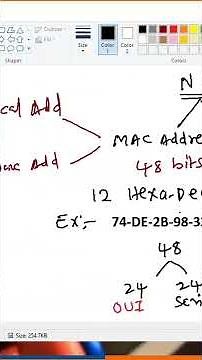 Size
Color 1
Color 2
Shapes
Colors
N
cal Add
MAC Addre
48 bits
Add
12 Hexa-De
Ex:- 74-DE-2B-98-3
48
24 24
OUI Seri
Size: 254.7KB